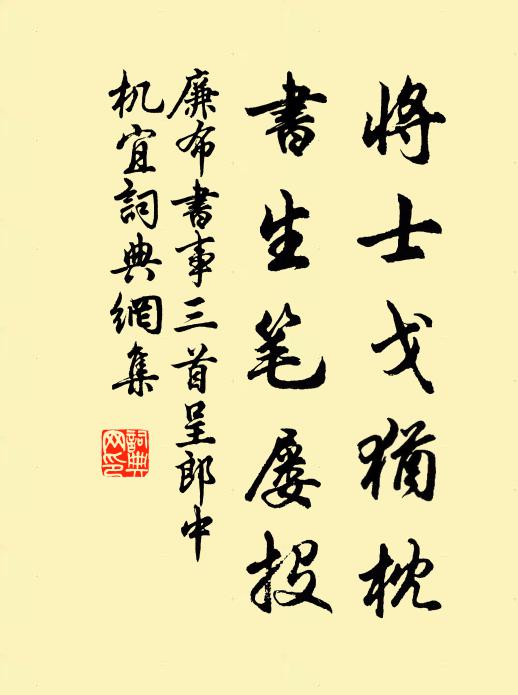 将士戈猶枕
書生笔屡投
廉布書事三首呈郎中
机宜詞典網集
詞典
网印